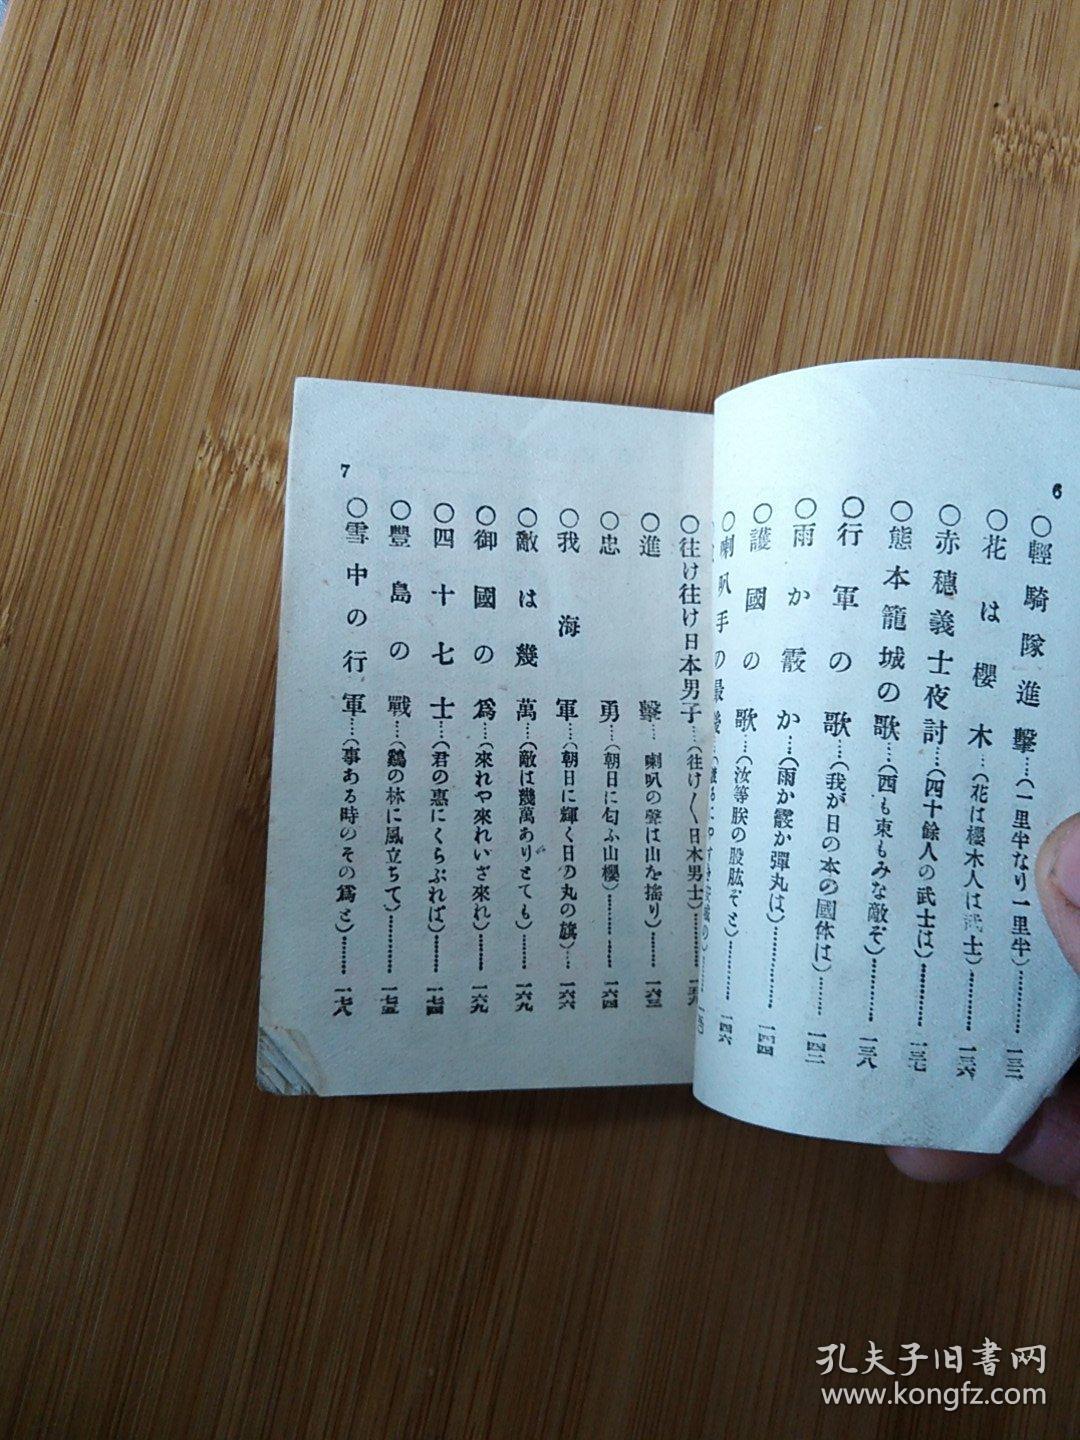 6
○輕騎隊進擊…(一里半なり一里半)…一三二
○花は櫻木…(花は櫻木人は武士)…一三六
○赤穗義士夜討…(四十餘人の武士は)…一三七
○熊本籠城の歌…(西も東もみな敵ぞ)…一三八
○行軍の歌…(我が日の本の國体は)…一四二
○雨か霰か…(雨か霰か彈丸は)…一四四
○護國の歌…(汝等朕の股肱ぞと)…一四六
○喇叭手の最後
7
○往け往け日本男子…(往け〱日本男士)…
○進擊…喇叭の聲は山を搖り)…一六三
○忠勇…(朝日に匂ふ山櫻)…一六四
○我海軍…(朝日に輝く日の丸の旗)…一六六
○敵は幾萬…(敵は幾萬ありとても)…一六九
○御國の爲…(來れや來れいざ來れ)…一六九
○四十七士…(君の惠にくらぶれば)…一七四
○豐島の戰…(鷄の林に風立ちて)…一七五
○雪中の行軍…(事ある時のその爲と)…一七八
孔夫子旧書网
www.kongfz.com